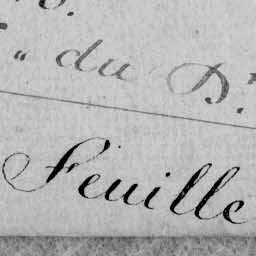 „ du D.
Feuille